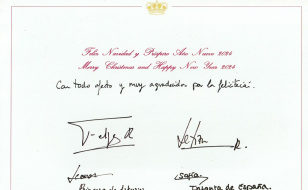 Feliz Navidad y Próspero Año Nuevo 2024
Merry Christmas and Happy New Year 2024
Con todo afecto y muy agradecidos por la felicitación.
Felipe R
Letizia R.
Leonor
Sofía
Princesa de Asturias
Infanta de España